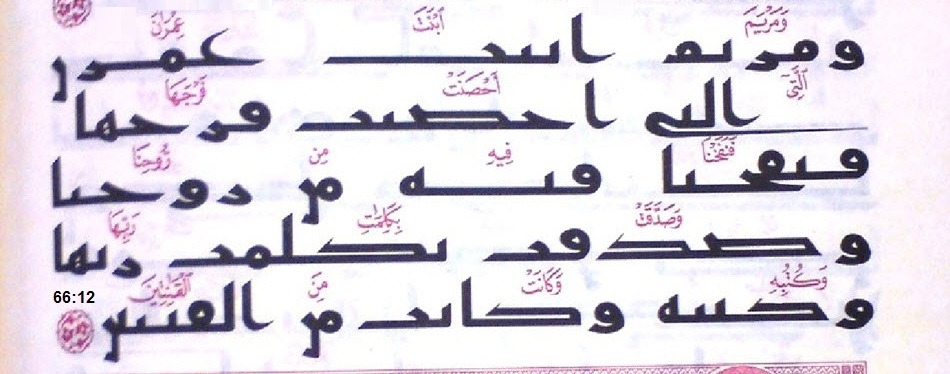 وَمَرْيَمَ ٱبْنَتَ عِمْرَٰنَ
ومريم ابنت عمرن
ٱلَّتِىٓ أَحْصَنَتْ فَرْجَهَا
التى احصنت فرجها
فَنَفَخْنَا فِيهِ مِن رُّوحِنَا
فنفخنا فيه من روحنا
وَصَدَّقَتْ بِكَلِمَٰتِ رَبِّهَا
وصدقت بكلمت ربها
وَكُتُبِهِۦ وَكَانَتْ مِنَ ٱلْقَٰنِتِينَ
66:12
وكتبه وكانت من القنتين